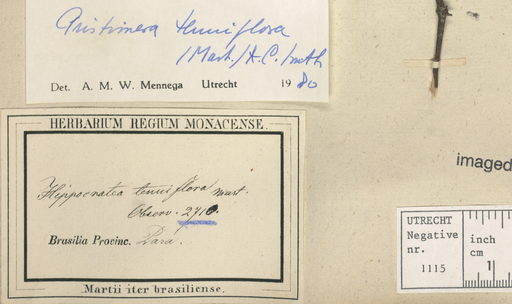 Pristimera tenuiflora
(Mart.) A.C. Smith
Det. A. M. W. Mennega Utrecht 1980
HERBARIUM REGIUM MONACENSE.
Hippocratea tenuiflora Mart.
Observ. 2710.
Brasilia Provinc. Pará.
Martii iter brasiliense.
imaged
UTRECHT
Negative
nr.
1115
inch
cm
1